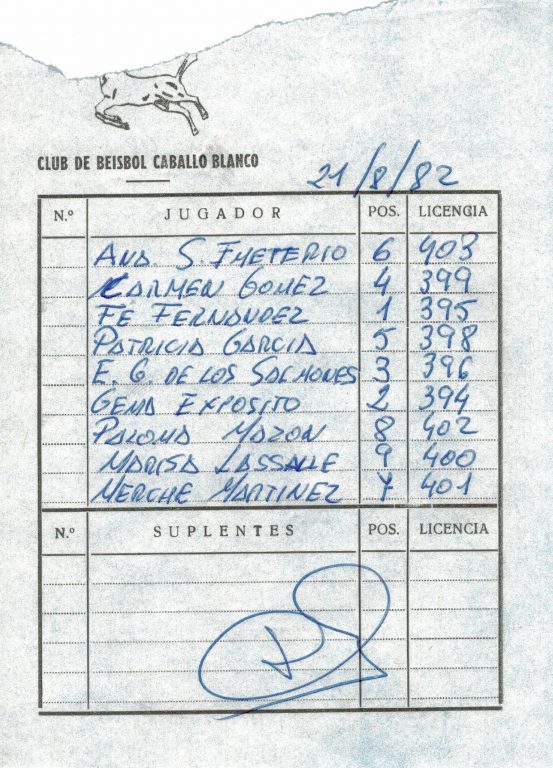 CLUB DE BEISBOL CABALLO BLANCO
21/8/82
N.º JUGADOR POS. LICENCIA
ANA. S. EMETERIO 6 403
CARMEN GOMEZ 4 399
FE FERNANDEZ 1 395
PATRICIA GARCIA 5 398
E. G. DE LOS SALMONES 3 396
GEMA EXPOSITO 2 394
PALOMA MAZON 8 402
MARISA LASSALLE 9 400
MERCHE MARTINEZ 7 401
N.º SUPLENTES POS. LICENCIA